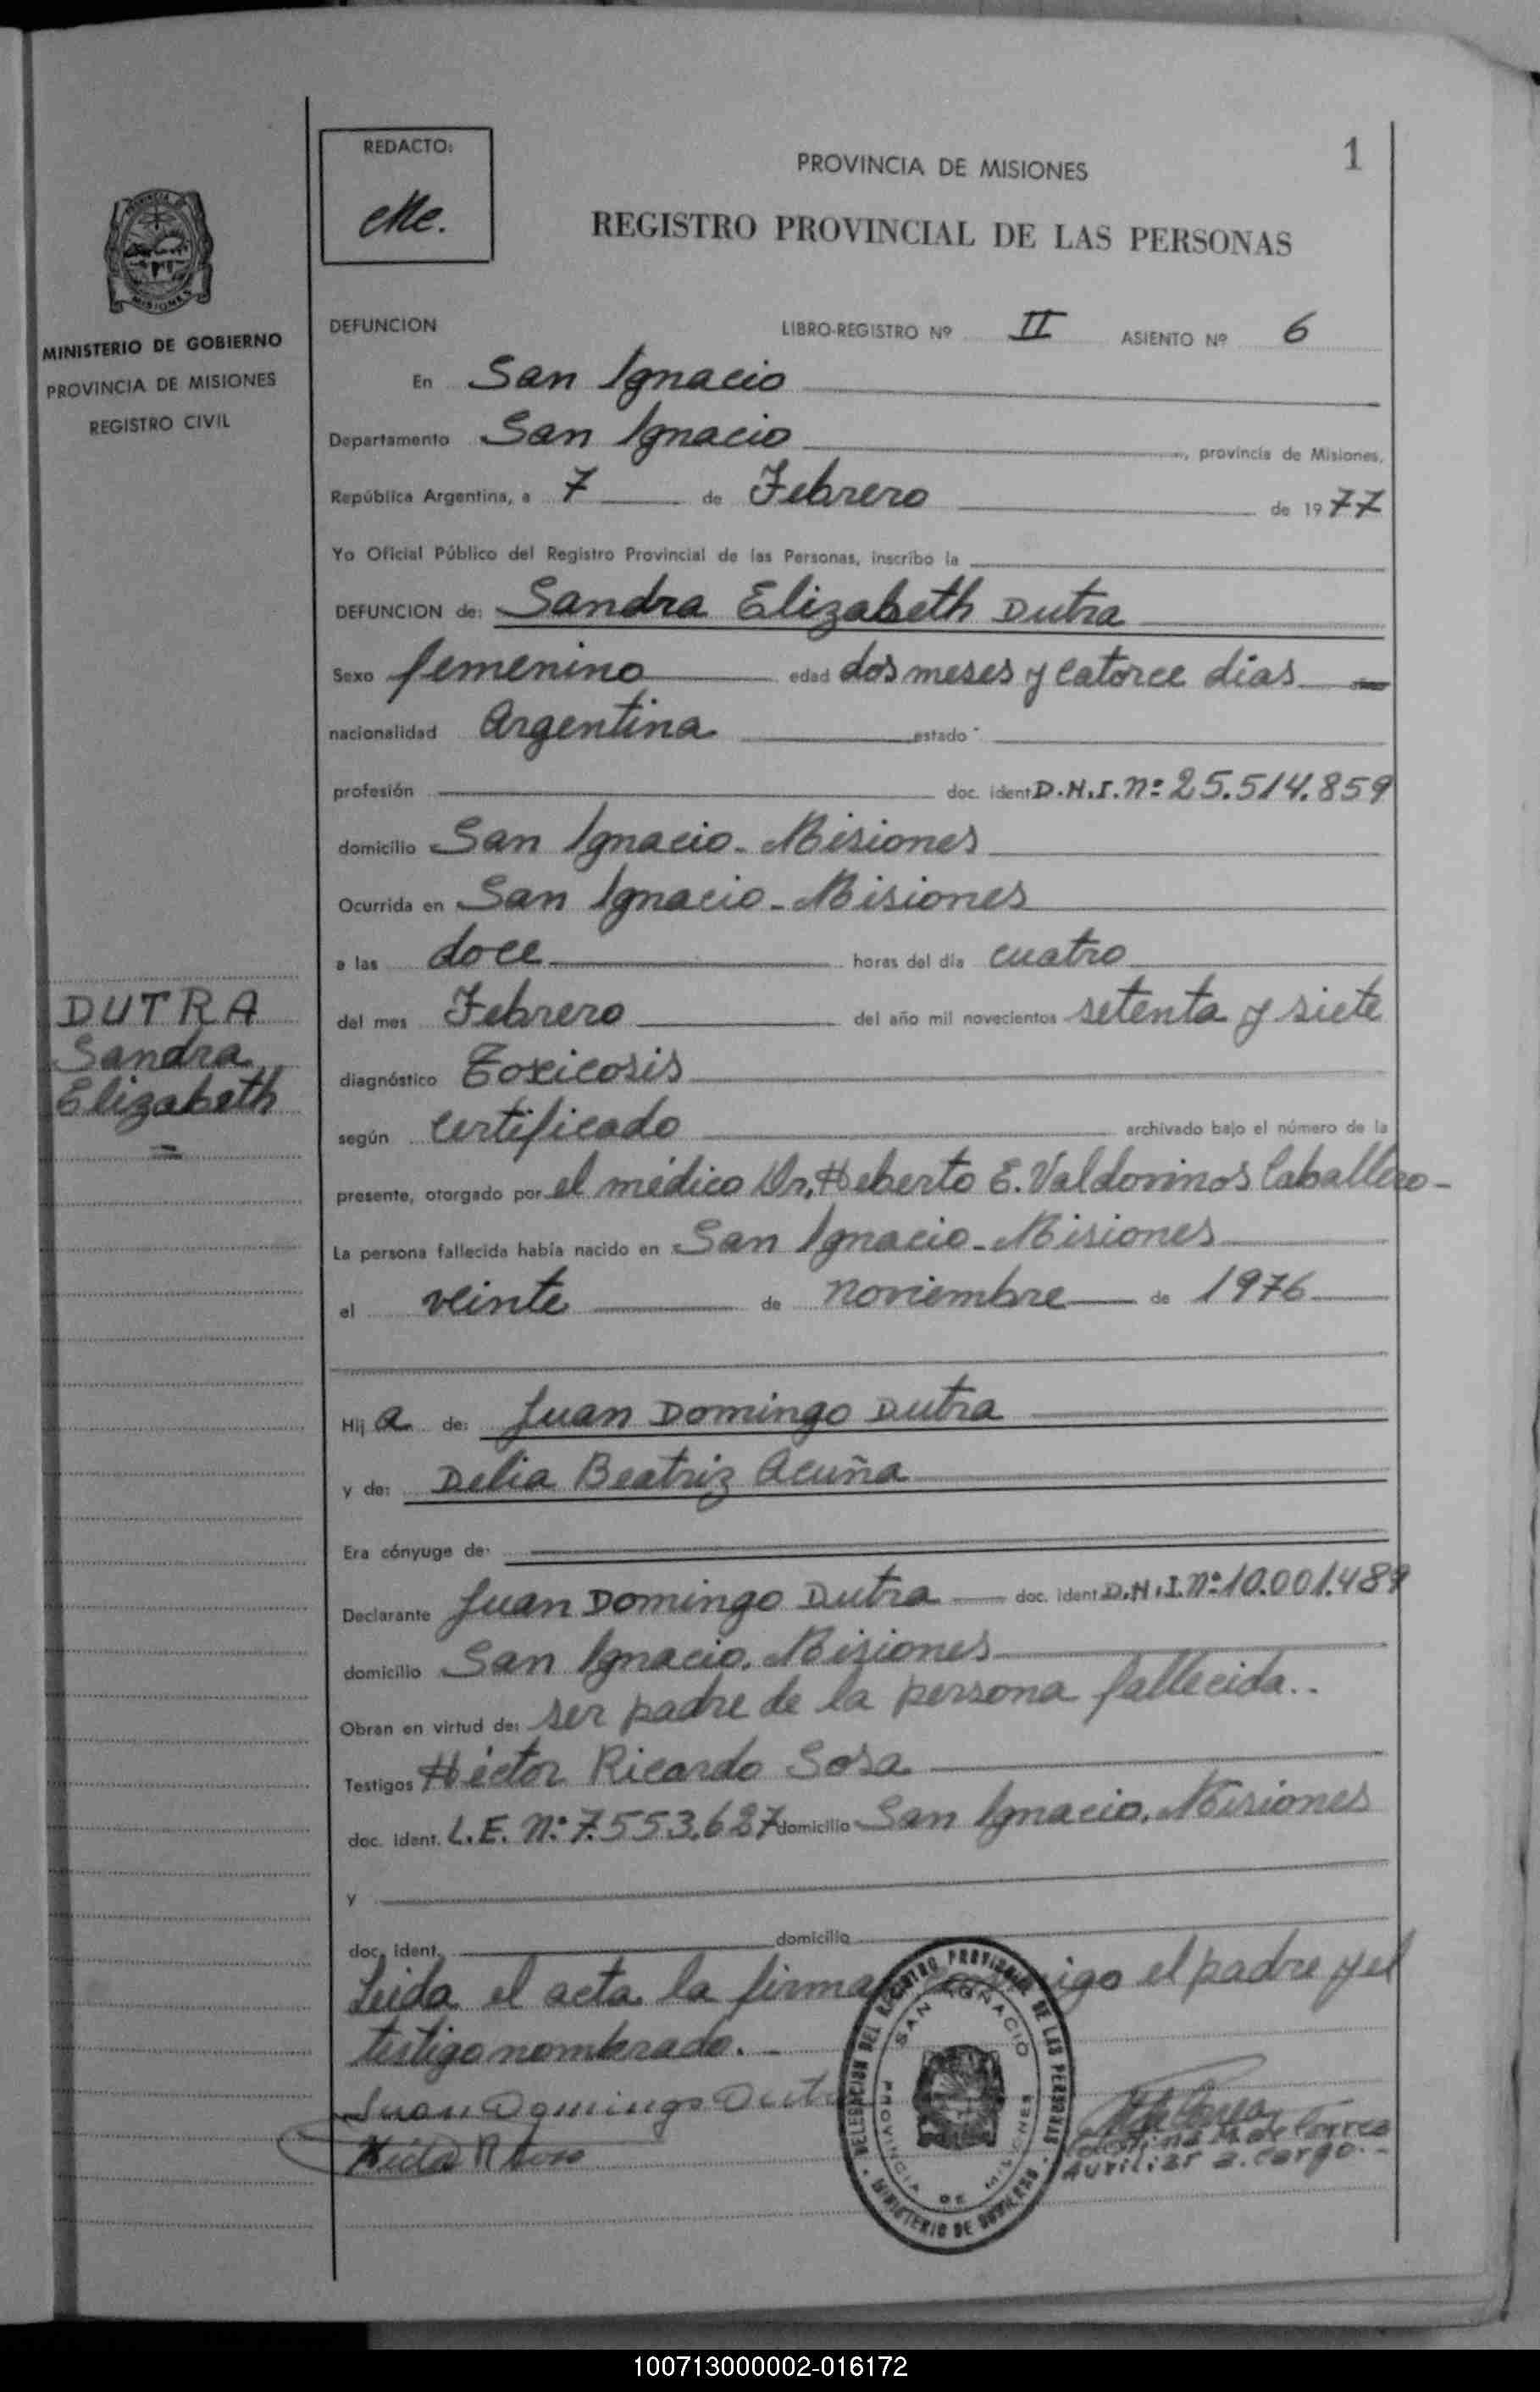 REDACTO:
Me.
1
PROVINCIA DE MISIONES
REGISTRO PROVINCIAL DE LAS PERSONAS
MISIONES
MINISTERIO DE GOBIERNO
PROVINCIA DE MISIONES
REGISTRO CIVIL
DEFUNCION LIBRO-REGISTRO Nº II ASIENTO Nº 6
En San Ignacio
Departamento San Ignacio, provincia de Misiones,
República Argentina, a 7 de Febrero de 1977
Yo Oficial Público del Registro Provincial de las Personas, inscribo la
DEFUNCION de: Sandra Elizabeth Dutra
Sexo femenino edad dos meses y catorce días
nacionalidad Argentina estado
profesión doc. ident D.N.I. nº 25.514.859
domicilio San Ignacio - Misiones
Ocurrida en San Ignacio - Misiones
a las doce horas del día cuatro
del mes Febrero del año mil novecientos setenta y siete
DUTRA
Sandra
Elizabeth
diagnóstico Toxicosis
según certificado archivado bajo el número de la
presente, otorgado por el médico Dr. Heberto E. Valdovinos Caballero -
La persona fallecida había nacido en San Ignacio - Misiones
el veinte de noviembre de 1976
Hij a de: Juan Domingo Dutra
y de: Delia Beatriz Acuña
Era cónyuge de:
Declarante Juan Domingo Dutra doc. ident D.N.I. nº 10.001.489
domicilio San Ignacio. Misiones
Obran en virtud de: ser padre de la persona fallecida..
Testigos Héctor Ricardo Sosa
doc. ident. L.E. nº 7.553.687 domicilio San Ignacio. Misiones
y
doc. ident. domicilio
Leida el acta la firma el padre y el
testigo nombrado. -
Juan Domingo Dutra
DELEGACION DEL REGISTRO PROVINCIAL DE LAS PERSONAS
SAN IGNACIO
PROVINCIA DE MISIONES
MINISTERIO DE GOBIERNO
M. de Correa
Auxiliar a. cargo. -
100713000002-016172